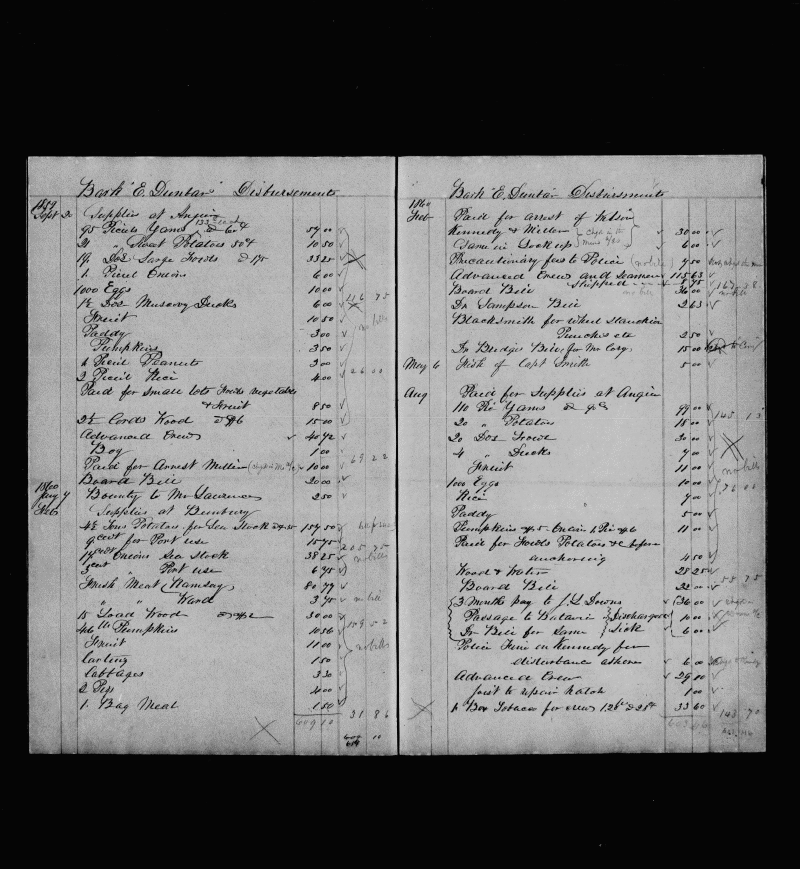 Bark "E. Dunbar" Disbursements
1859
Sept 20 Supplies at Angier
95 Piculs Yams 133 @ 60¢ 57 00
21 " Sweet Potatoes 50¢ 10 50
19 Doz Large Fowls @ 175 33 25
1 Picul Onions 6 00
1000 Eggs 10 00
1½ Doz Muscovy Ducks 6 00 116 75
Fruit 10 50 no bills
Paddy 3 00
Pumpkins 3 50
1 Picul Peanuts 3 00
2 Picul Rice 4 00 26 00
Paid for small lots Fowls vegetables
& Fruit 8 50
2½ Cords Wood @ $6 15 00
Advanced Crew 40 72
Boy 1 00
Paid for Arrest Miller 10 00 69 22
Board Bill 20 00
1860
Jany 7 Bounty to Mr Lawrence 2 50
Feb Supplies at Bunbury
4½ Tons Potatoes for Sea Stock @ $35 157 50
9 cwt for Port use 15 75
17 cwt Onions Sea Stock 38 25 205 75
3 cwt " Port use 6 75 no bills
Fresh Meat (Ramsay) 80 77
" Ward 3 75 no bill
15 Load Wood @ $2 30 00
46 lb Pumpkins 10 56 149 52
Fruit 11 00 no bills
Carting 1 50
Cabbages 3 30
2 Pigs 4 00
1 Bag Meal 1 50 31 86
609 10
609 10
Bark "E. Dunbar" Disbursments
1860
Feb Paid for arrest of Wilson
Kennedy & Miller 30 00
Same in Lock up 6 00
Precautionary fees to Police (no bill) 7 50
Advanced Crew and Seamen 115 63
shipped 8 75
Board Bill no bill 36 00 no bill
Dr Sampson Bill 2 63
Blacksmith for Wheel Stanchion
Punches etc 2 50
Dr Bridges Bill, for Mr Cory 15 00
May 6 Fish of Capt Smith 5 00
Aug Paid for Supplies at Angier
110 Pic Yams @ 90¢ 99 00 145 13
20 " Potatoes 18 00
20 Doz Fowl 30 00
4 " Ducks 7 00
Fruit 11 00 no bills
1000 Eggs 10 00 176 00
Rice 7 00
Paddy 5 00
Pumpkins $5 Onions 1 Pic $6 11 00
Paid for Fowls Potatoes &c before
anchoring 4 50
Wood & Water 28 25
Board Bill 22 00 58 75
3 Months pay to J. L. Downs 36 00
Passage to Batavia Discharged 10 00
Dr Bill for Same Sick 6 00
Police Fine on Kennedy for
disturbance ashore 6 00
Advanced Crew 29 10
paid to repair hatch 1 00
1 Box Tobacco for crew 120 lb @ 28¢ 33 60 143 70